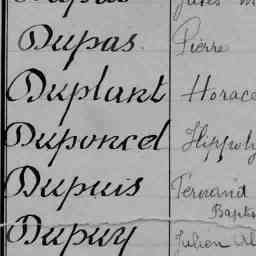 Dupas Pierre
Duplant Horace
Duponcel Hippoly
Dupuis Fernand
Baptis
Dupuy Julien Al